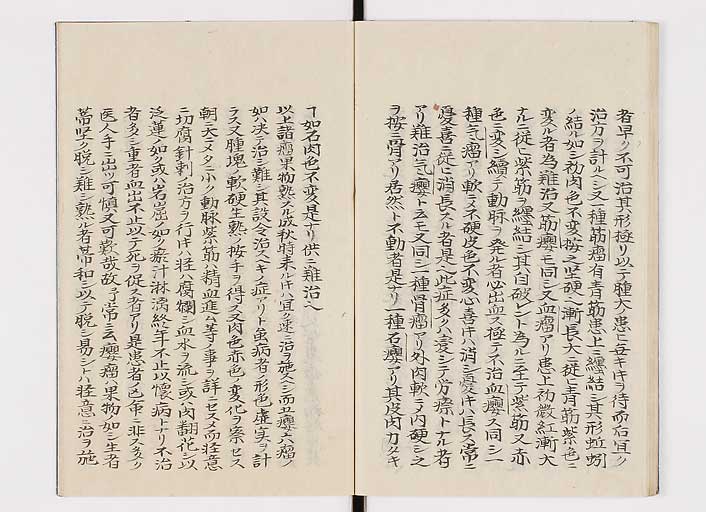 者早ク不可治其形極リ以テ種大ノ患ニ毎キヰヲ待而后宜ク
治方ヲ計ルヘシ又一種筋瘤有青筋患上ニ纏結シ其形蚯蚓
ノ結ル如シ初肉色不変按之堅硬ヘ漸長大ニ従ヒ青筋紫色ニ
変ル者為難治又筋癭モ同シ又血瘤アリ患上初微紅漸大
ナルニ従ヒ紫筋ヲ纏結シ其外自破レント為ルニ至テ紫筋又赤
色ニ変シ續テ動脈ヲ発ル者必出血ス極テ不治血癭ス同シ一
種気瘤アリ軟ニメ不硬皮色不変心喜キハ消シ憂キハ長ス常ニ
憂喜ニ従ヒ消長スル者是ヘ此症多クハ変シテ労瘵トナル者
アリ難治気癭ト云モ又同シ一種骨瘤アリ外肉軟ニメ内硬シ之
ヲ按ニ骨アリ居然ト不動者是ナリ一種石癭アリ其皮肉カタキ
ヿ如石肉色不変是ナリ供ニ難治ヘ
以上諸瘤果物熟スル成秋時来ルキハ宜ク速ニ治ヲ施スヘシ而五癭六瘤ノ
如ハ决テ治シ難シ其設令治スヘキノ症アリト虽病者ノ形色虚実ヲ計
ラス又腫塊ノ軟硬生熟ヲ按手ヲ得ス又肉色赤色ノ変化ヲ察セス
朝ニ大ニメ夕ニ小ク動脉紫筋ノ精血進ム等ノ事ヲ詳ニセスメ而軽意
ニ切腐針刺ノ治方ヲ行キハ軽ハ腐爛シ血水ヲ流シ或ハ肉翻花シ以
泛蓮ノ如ク或ハ岩崫ノ如ク瘀汁淋漓終年不止以懐病トナリ不治
者多シ重者血出不止以テ死ヲ促ス者アリ是患者ノ亡命ニ非ス多クハ
医人手ニ出ツ可慎又可歎哉故ニ予常ニ云癭瘤ハ果物ノ如シ生者
蔕堅ク脱シ難シ熟ル者蔕和シ以テ脱シ易シトハ軽意ニ治ヲ施